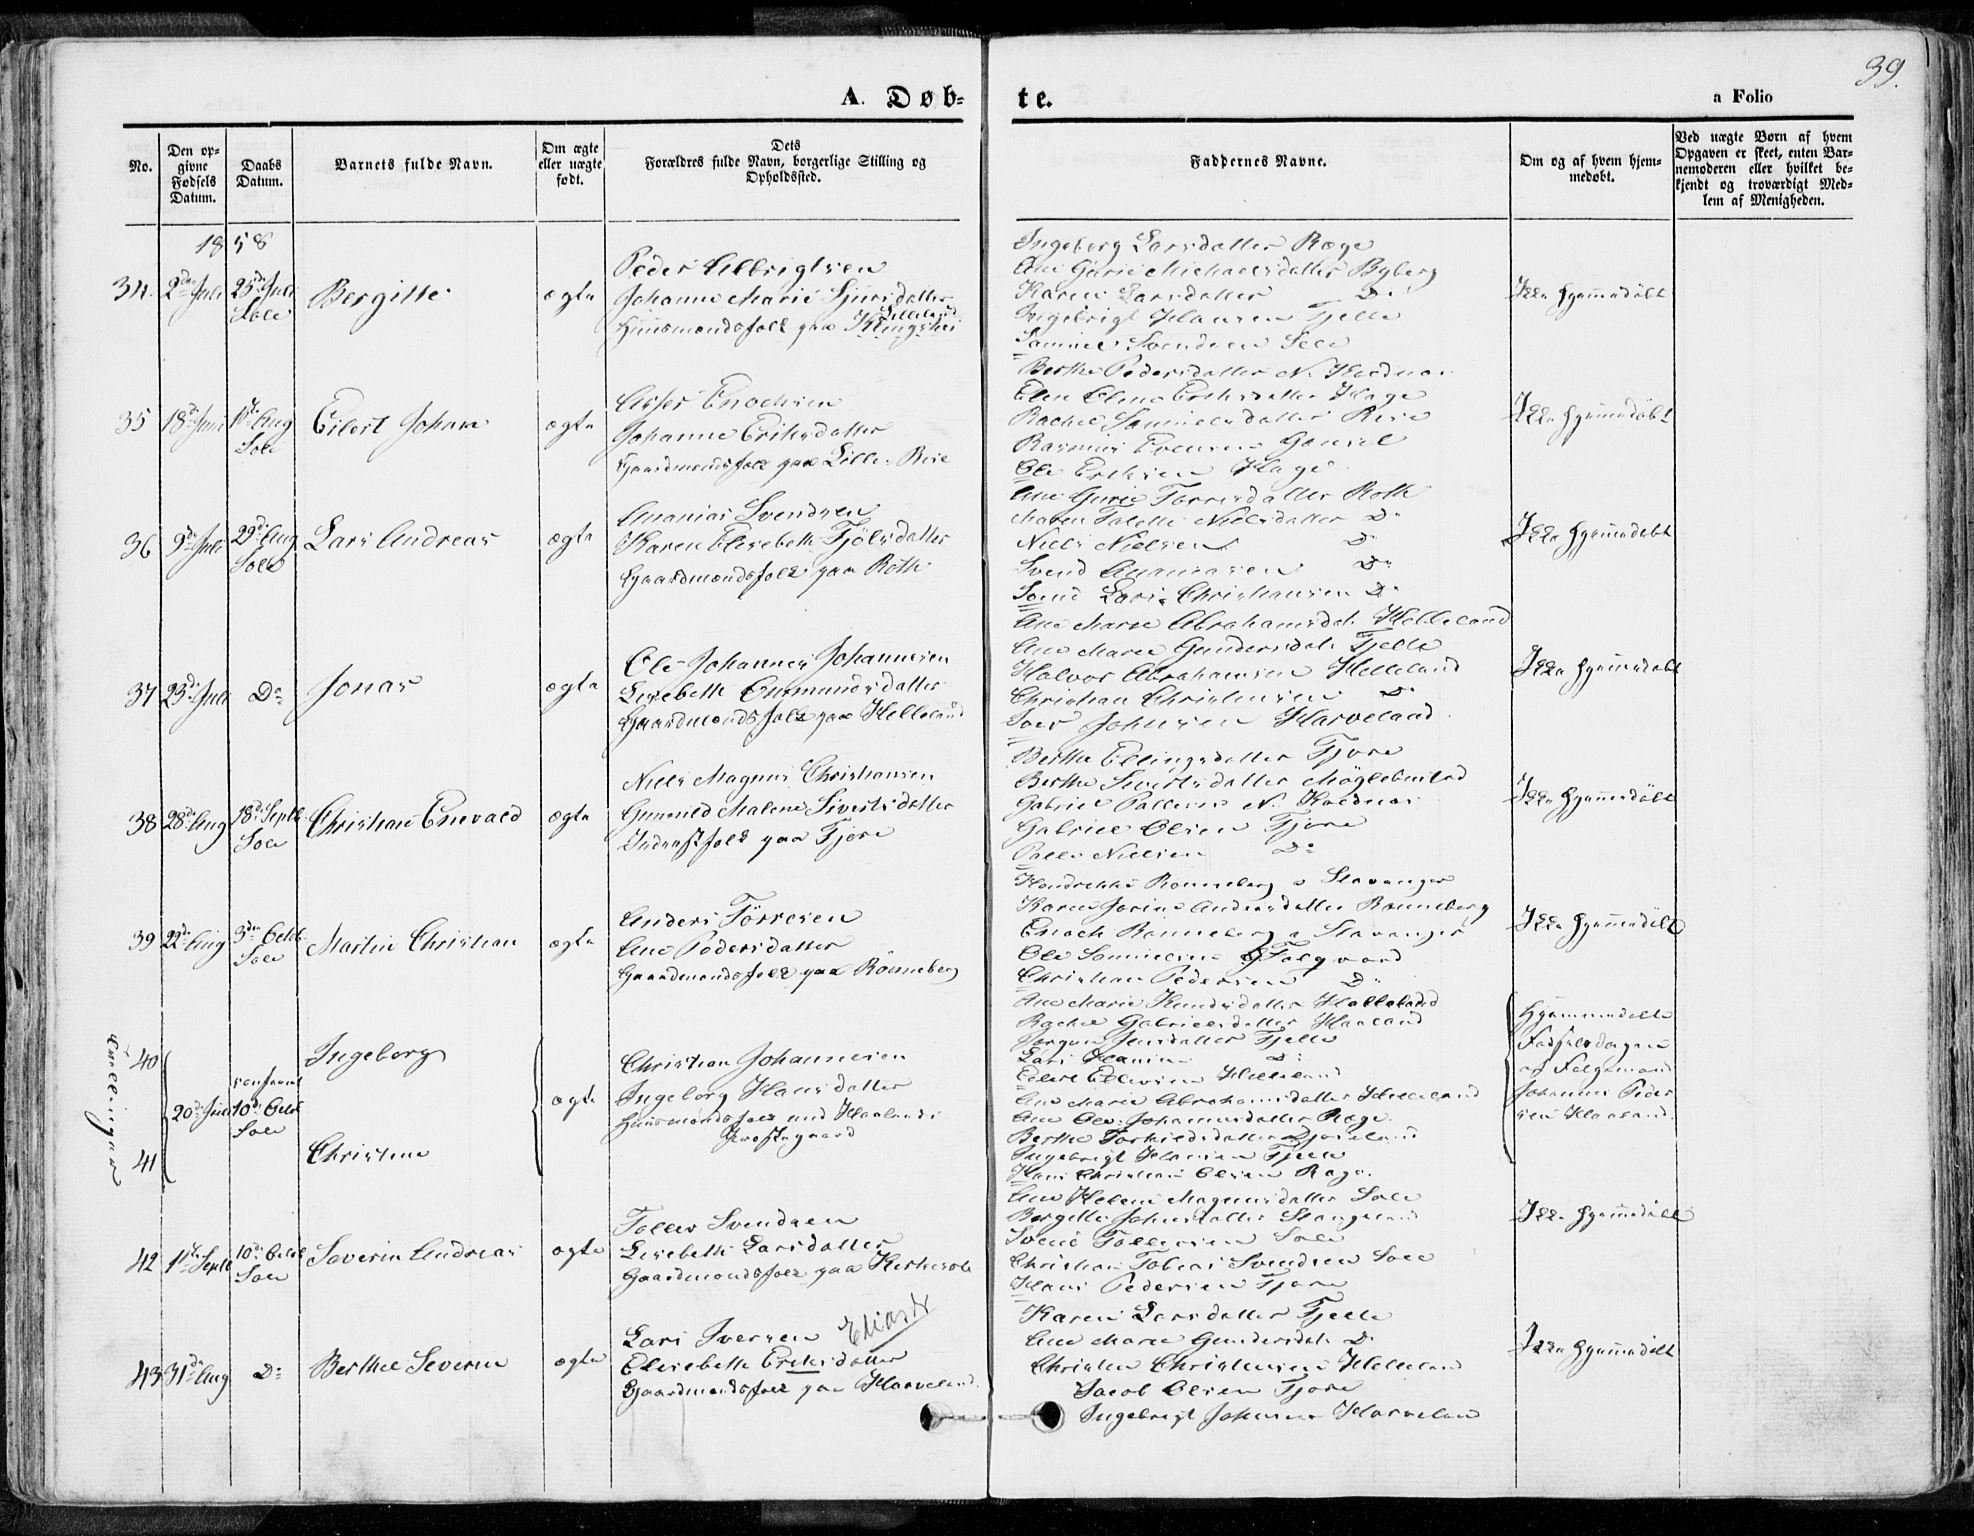 39.
A. Døb=
te.
a Folio
No.
Den op=
givne
Fødsels
Datum.
Daabs
Datum.
Barnets fulde Navn.
Om ægte
eller uægte
født.
Dets
Forældres fulde Navn, borgerlige Stilling og
Opholdssted.
Faddernes Navne.
Om og af hvem hjem=
medøbt.
Ved uægte Børn af hvem
Opgaven er skeet, enten Bar=
nemoderen eller hvilket be=
kjendt og troværdigt Med=
lem af Menigheden.
1858
34. 2den Juli 25de Juli
Sole
Bergitte
ægte
Peder
Johanne Marie Sjursdatter
Huusmandsfolk paa
Ingeborg Larsdatter Ræge
Ane Gurie Michaelsdatter Byberg
Karen Larsdatter Do
Ingebrigt Hansen Tjelle
Samuel Svendsen Sole
Ikke hjemmedøbt
35 18de 1ste Aug
Sole
Eilert Johan
ægte
Asser Enochsen
Johanne Eriksdatter
Gaardmandsfolk paa Lille Rise
Berthe Pedersdatter N.
Elen Eriksdatter Hage
Rachel Samuelsdatter Risa
Rasmus Evensen Gausel
Ole Eriksen Hage
Ikke hjemmedøbt
36 9de Juli 29de Aug
Sole
Lars Andreas
ægte
Ananias Svendsen
Karen Elisebeth
Gaardmandsfolk paa Roth
Ane Gurie Torrisdatter Roth
Maren Nielsdatter Do
Niels Nielsen Do
Svend Ananiasen Do
Lars Christiansen Do
Ikke hjemmedøbt
37 23de Juli Do
Jonas
ægte
Ole Johannes Johannesen
Lisebeth Enmundsdatter
Gaardmandsfolk paa Helleland
Ane Marie Abrahamsdatr Helleland
Ane Marie Gundersdatr Tjelle
Halvor Abrahamsen Helleland
Christian Christensen Do
Iver Johnsen Harveland
Ikke hjemmedøbt
38 28de Aug 18de Septb
Sole
Christian Enevald
ægte
Niels Magnus Christiansen
Gunnild Malene Sivertsdatter
Inderstfolk paa Tjore
Berthe Ellingsdatter Tjore
Berthe Sivertsdatter
Gabriel Pallesen N.
Gabriel Olsen Tjore
Palle Nielsen Do
Ikke hjemmedøbt
39 22de Aug 3die Octb
Sole
Martin Christian
ægte
Anders Tørresen
Ane Pedersdatter
Gaardmandsfolk paa Rønneberg
Rønneberg a Stavanger
Karen Jorine Andersdatter Rønneberg
Enoch Rønneberg a Stavanger
Ole Samuelsen
Christian Pedersen Do
Ikke hjemmedøbt
Tvillinger
40
41
20de Juni 10de Octb
Sole
Ingeborg
Christine
ægte
Christian Johannesen
Ingeborg Hansdatter
Huusmandsfolk und Haalands
Præstegaard
Ane Marie Knudsdatter Helleland
Rachel Gabrielsdatter Haaland
Jørgine Jensdatter Tjelle
Lars Hansen Do
Eilert Eilertsen Helleland
Ane Marie Abrahamsdatter Helleland
Ane Johannesdatter Ræge
Berthe Torkildsdatter
Ingebrigt Hansen Tjelle
Hans Christian Olsen Ræge
Hjemmedøbte
Fødselsdagen
af
Johannes Peder
sen Haaland.
42 1ste Septb 10de Octob
Sole
Severin Andreas
ægte
Tollev Svendsen
Lisebeth Larsdatter
Gaardmandsfolk paa Kirkesole
Ane Helene Magnusdatter Sole
Bergitte Johnsdatter Stangeland
Svend Tollevsen Sole
Christian Tobias Svendsen Sole
Hans Pedersen Tjore
Ikke hjemmedøbt
43 31de Aug Do
Berthe Severine
ægte
Lars Iversen
Eliasdr
Elisebeth Eriksdatter
Gaardmandsfolk paa Harveland.
Karen Larsdatter Tjelle
Ane Marie Gundersdatr Do
Christen Christensen Helleland
Jacob Olsen Tjore
Ingebrigt Johnsen Harveland
Ikke hjemmedøbt